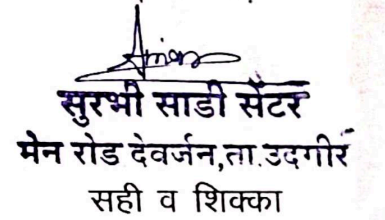 सुरभी साडी सेंटर
मेन रोड देवर्जन,ता.उदगीर
सही व शिक्का